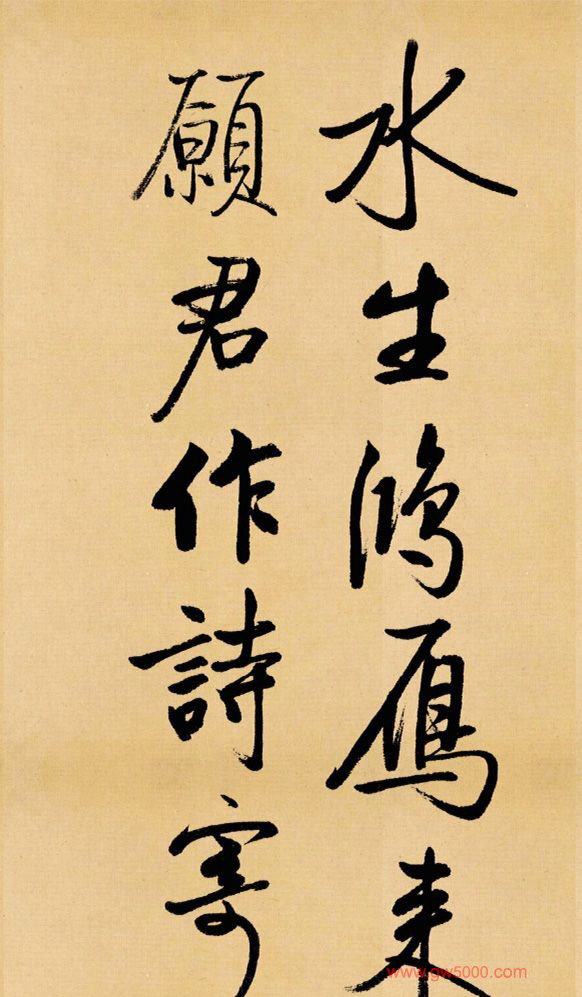 水生鴻鴈来
願君作詩寄
www.gw5000.com